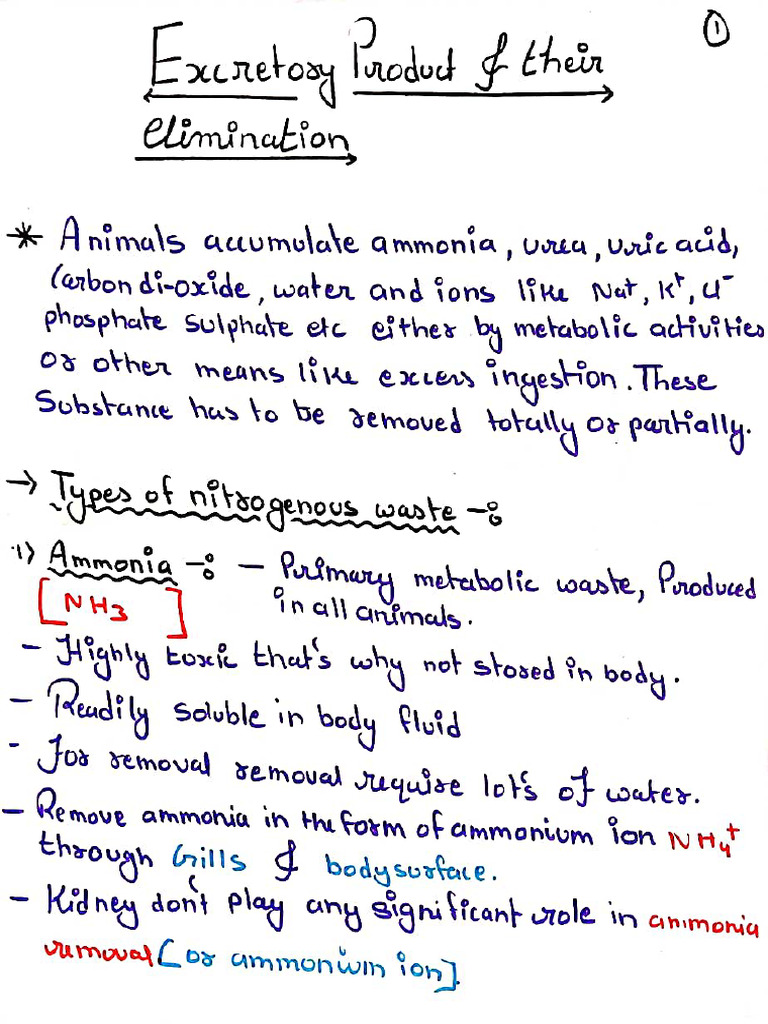 ①
Excretory Product & their
elimination
* Animals accumulate ammonia, urea, uric acid,
Carbon di-oxide, water and ions like Na+, K+, Cl-
phosphate sulphate etc either by metabolic activities
or other means like excess ingestion. These
Substance has to be removed totally or partially.
→ Types of nitrogenous waste -:
1) Ammonia -: - Primary metabolic waste, Produced
[NH3] in all animals.
- Highly toxic that's why not stored in body.
- Readily soluble in body fluid
- For removal removal require lot's of water.
- Remove ammonia in the form of ammonium ion NH4+
through Gills & body surface.
- Kidney don't play any significant role in ammonia
removal [or ammonium ion].